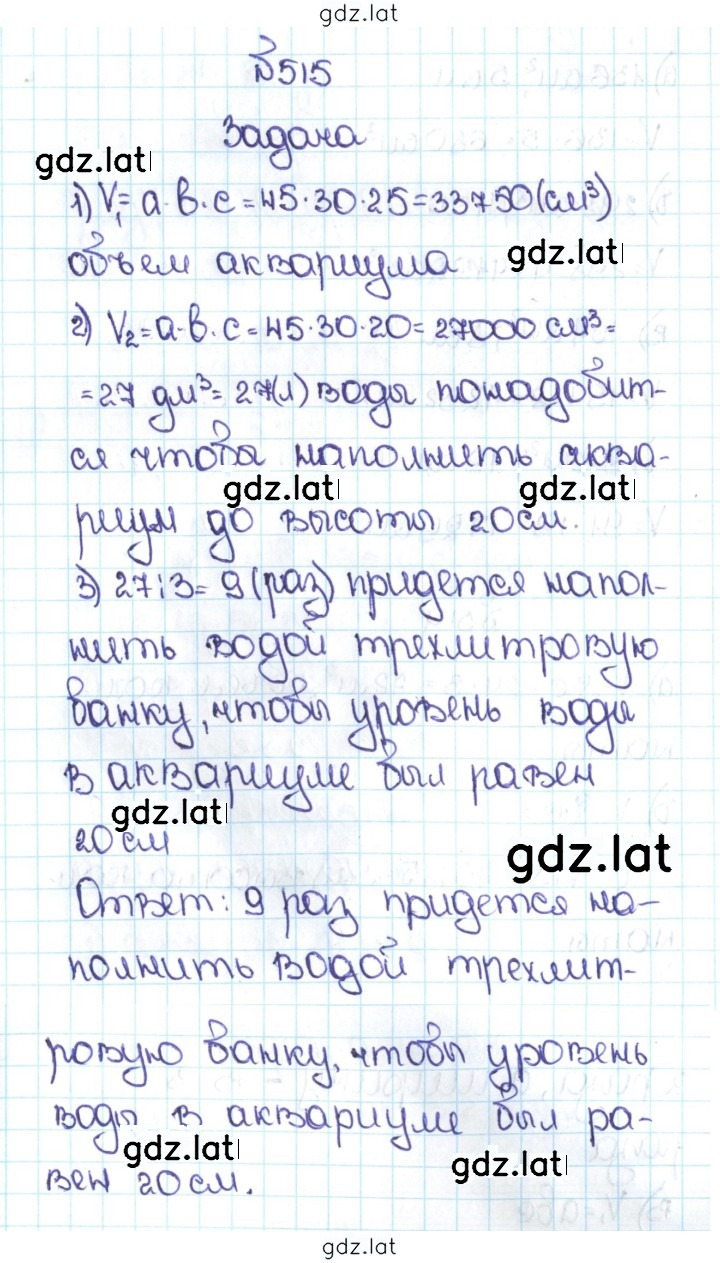 gdz.lat
№515
Задача
gdz.lat
1) V₁= a·в·c=45·30·25=33750(см³)
объем аквариума gdz.lat
2) V₂=a·в·c=45·30·20=27000 см³=
=27 дм³=27(л) воды понадобит-
ся чтобы наполнить аква-
gdz.lat gdz.lat
риум до высоты 20см.
3) 27:3= 9 (раз) придется напол-
нить водой трехлитровую
банку, чтобы уровень воды
в аквариуме был равен
gdz.lat
20 см
gdz.lat
Ответ: 9 раз придется на-
полнить водой трехлит-
ровую банку, чтобы уровень
воды в аквариуме был ра-
gdz.lat gdz.lat
вен 20 см.
gdz.lat